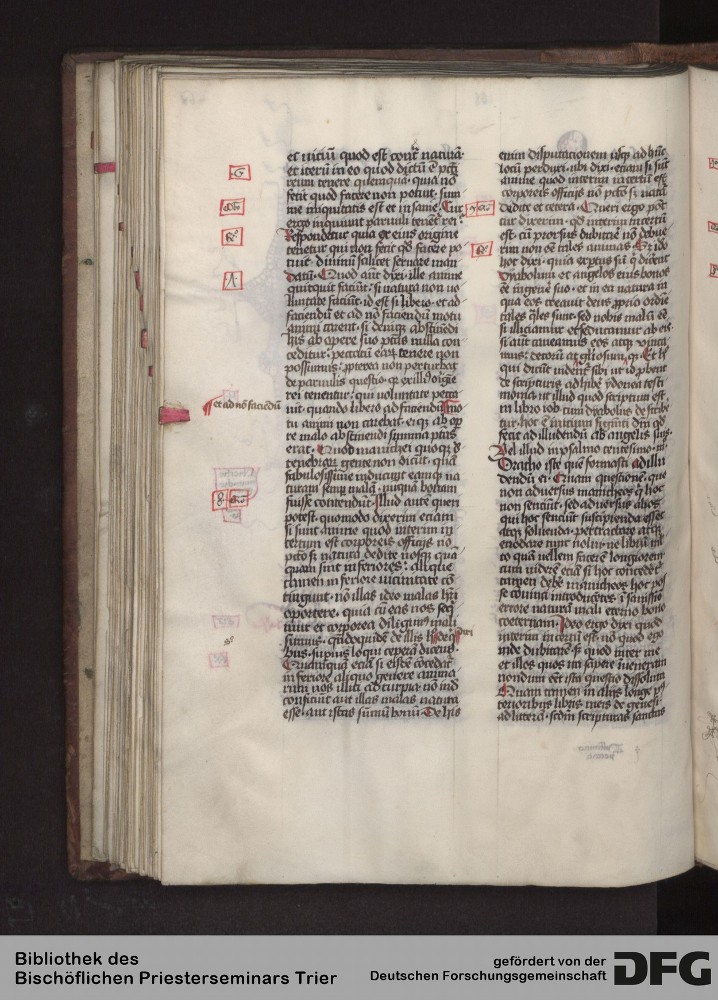 et viciū quod est cont̄ naturā
et iterū in eo quod dictū ē pctī
reum tenere quemquā quia nō
fecit quod facere non potuit sum
me iniquitatis est et insanie. Cur
ergo inquiunt paruuli tenēt rei
Respondetur quia ex eius origine
tenētur qui non fecit qd facere po
tuit diuinū scilicet seruare man
datū. Quod aūt dixi ille anime
quitquit faciūt si natura non uo
lūtate faciūt id est si libero et ad
faciendū et ad nō faciendū motu
animi carent si deniq; abstinēdi
hijs ab opere suo ptās nulla con
ceditur peccatū eaȝ tenere non
possumus propterea non perturbat
de paruulis questio qz ex illiᵒ origīe
rei tenentur qui voluntate pecca
uit quando libero ad faciendū mo
tu animi non carebat eiqz ab op
re malo abstinendi summa ptās
erat. Quod manichei
tenebraȝ gente non dicūt quā
fabulosissime inducunt eamqz na
turam semp malā nūquā bonam
fuisse contendūt. Illud aute queri
potest quomodo dixerim etiam
si sunt anime quod interim in
certum est corporeis officijs nō
pctō sȝ natura dedite nosqz quā
quam sint inferiores alique
tamen inferiore vicinitate cō
tingunt nō illas ideo malas
oportere quia cū eas nos
tuir et corporea diligimꝰ mali
sumus quādoquidē de illis
bus supius loqui ceperā dicens
Quamquā etiā si eisdē cōcedat̄
inferiore aliquo genere anima
rum nos illici ad turpia nō ind
conficiunt aut illas malas natura
esse aut istas sūmū bonū. De hijs
et ad nō faciēdū
enim disputacionem usqz ad hūc
locū perduxi ubi dixi etiam si sūt
anime quod interim incertū est
corporeis officijs nō pctō sȝ natā
dedite et cetera. Queri ergo pōt
cur dixerim qd interim incertū
est cū prorsus dubitare nō debue
rim non eē tales animas. Sȝ iō
hoc dixi quia expertꝰ sū q dicūt
dyabolum et angelos eius bonos
eē in genere suo et in ea natura in
qua eos creauit deus pprio ordīe
tales qles sunt sed nobis malū eē
si illiciamur et seducamur ab eis
si aūt caueamus eos atqz vinca
mus decorū at gliosum. Et hī
qui dicūt videnē sibi ut id pbent
de scripturis adhibē ydonea testi
monia ut illud quod scriptum est
in libro iob cum dyabolus describe
tur hoc ē inicium figmēti dnī qd
fecit ad illudendū ab angelis suis
Vel illud in psalmo centesimo
Dracho iste quē formasti ad illu
dendū ei. Quam questionē que
non aduersus manicheos q hoc
non senciūt sed aduersus alios
qui hoc senciūt suscipienda esset
atqz soluenda pertractare atqz
enodare tunc nolui ne librū m̄l
to quā uellem facerem longiorem
cum viderē etiā si hoc concedēt̄
tamen debē manicheos hoc pos
se conuinci introducētes insanissīo
errore naturā mali eterno bono
coeternam. Ideo ergo dixi quod
interim incertū est nō quod ego
inde dubitarē sȝ quod inter me
et illos quos sic sapere inueneram
nondum eēt ista questio dissoluta
Quam tamen in alijs longe pos
terioribus libris meis de genesi
ad litterā scdm scripturas sanctas
Bibliothek des
Bischöflichen Priesterseminars Trier
gefördert von der
Deutschen Forschungsgemeinschaft
DFG